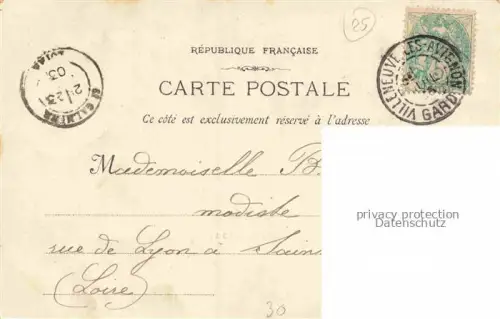 25
RÉPUBLIQUE FRANÇAISE
CARTE POSTALE
Ce côté est exclusivement réservé à l'adresse
VILLENEUVE-LES-AVIGNON
GARD
03
Mademoiselle B
modiste
rue de Lyon à Sain
(Loire)
privacy protection
Datenschutz
30